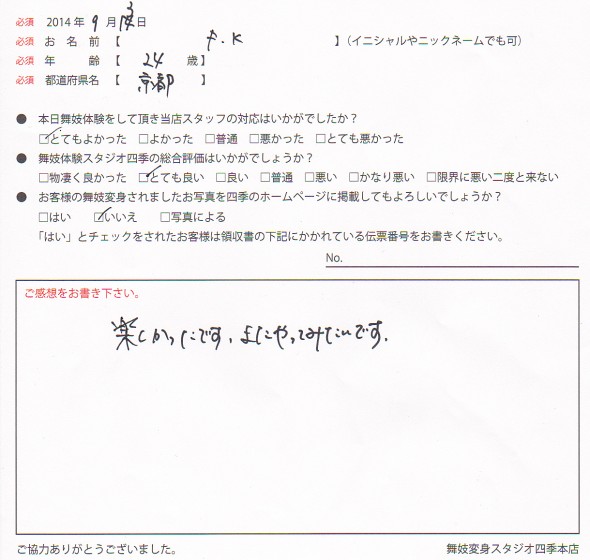 必須 2014年 9 月 3 日
必須 お 名 前 【 F.K 】（イニシャルやニックネームでも可）
必須 年 齢 【 24 歳】
必須 都道府県名 【 京都 】
● 本日舞妓体験をして頂き当店スタッフの対応はいかがでしたか？
☑とてもよかった □よかった □普通 □悪かった □とても悪かった
● 舞妓体験スタジオ四季の総合評価はいかがでしょうか？
□物凄く良かった ☑とても良い □良い □普通 □悪い □かなり悪い □限界に悪い二度と来ない
● お客様の舞妓変身されましたお写真を四季のホームページに掲載してもよろしいでしょうか？
□はい ☑いいえ □写真による
「はい」とチェックをされたお客様は領収書の下記にかかれている伝票番号をお書きください。
No.
ご感想をお書き下さい。
楽しかったです、またやってみたいです.
ご協力ありがとうございました。 舞妓変身スタジオ四季本店